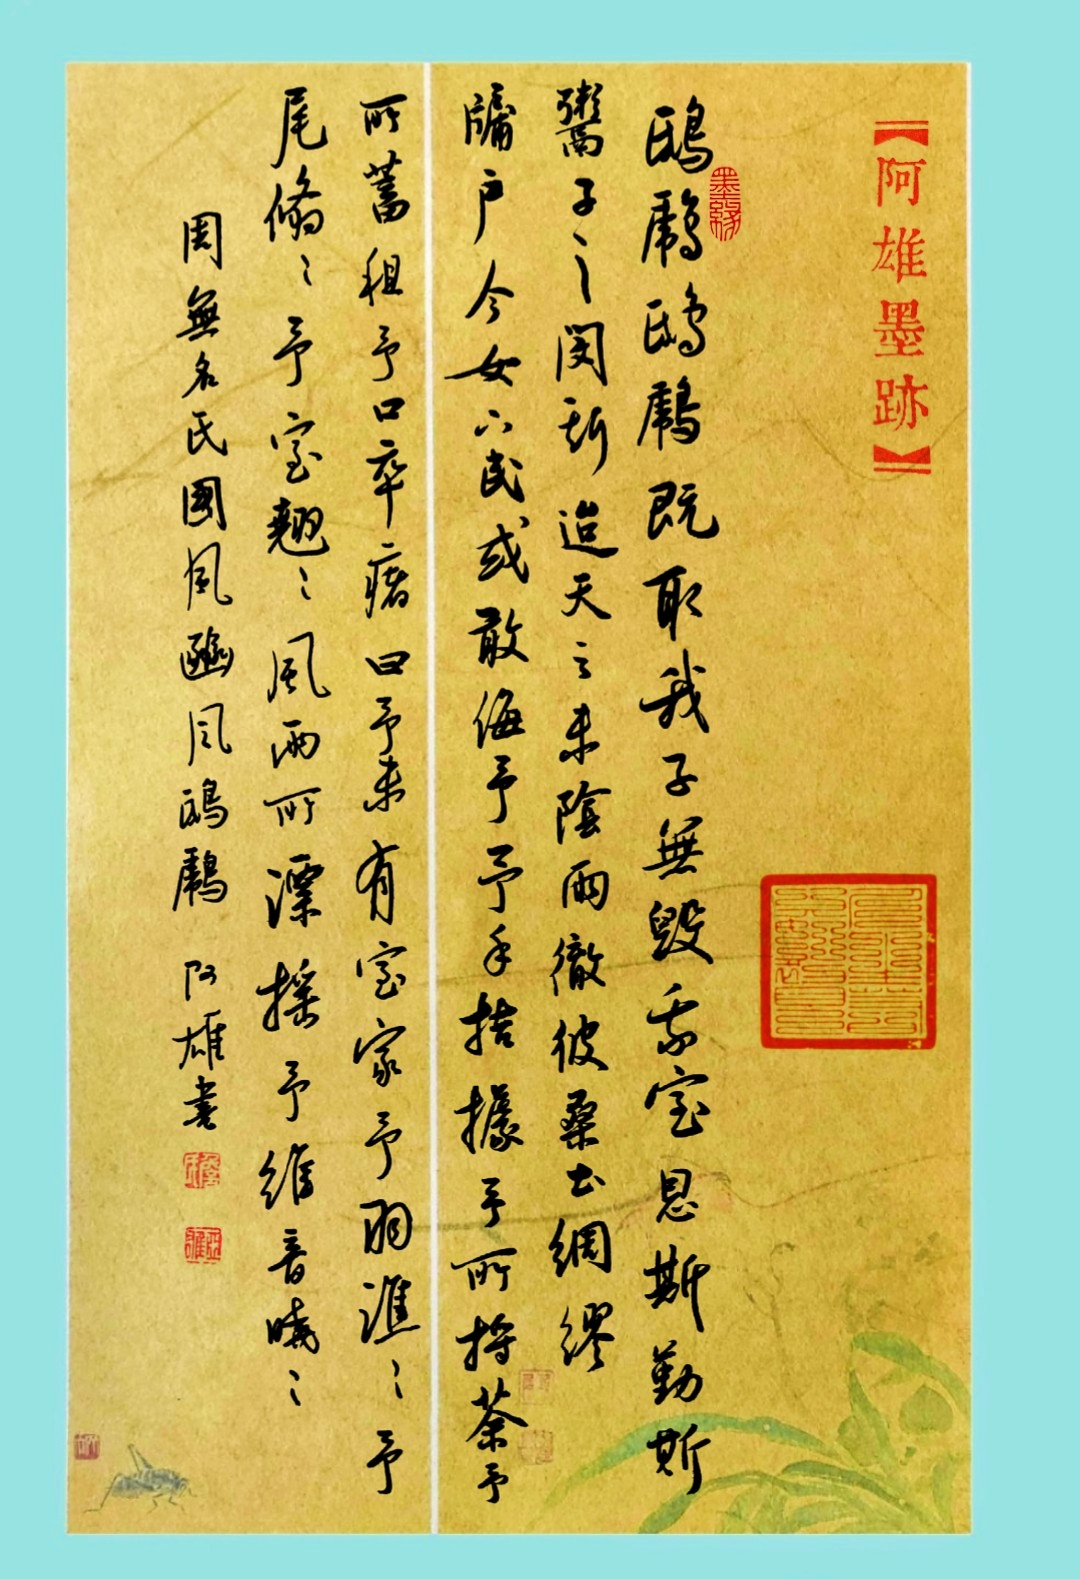 【阿雄墨跡】
墨緣
鴟鴞鴟鴞既取我子無毀我室恩斯勤斯
鬻子之閔斯迨天之未陰雨徹彼桑土綢繆
牖户今女下民或敢侮予予手拮據予所捋荼予
所蓄租予口卒瘏曰予未有室家予羽譙〻予
尾翛〻予室翹〻風雨所漂搖予維音嘵〻
周無名氏國風豳風鴟鴞 阿雄書